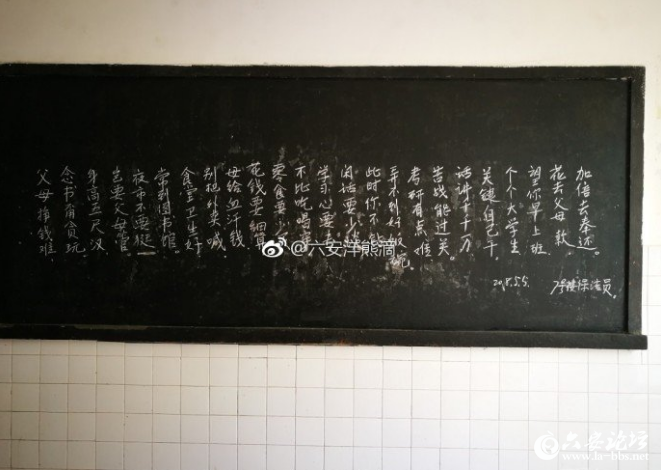 父母挣钱难
念书肩贪玩。
身高五尺汉
岂要父母管。
夜市不要逛
常到图书馆。
食堂卫生好
别把外卖喊。
母给血汗钱
花钱要细算
零食要少
不比吃喝
学习心要
闲话要少
此时你不
弄不到好饭碗。
考研有点难
苦战能过关。
话讲千千万
关键自己干。
个个大学生
望你早上班
花去父母款
加倍去奉还。
20.8.5.5.
7号楼保洁员。
@六安洋熊滴
六安论坛
www.la-bbs.net